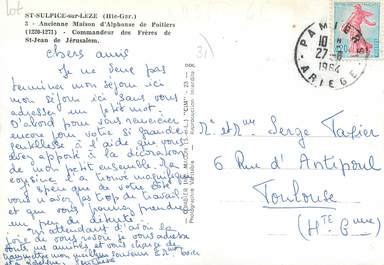 lot
ST-SULPICE-sur-LEZE (Hte-Gar.)
3 - Ancienne Maison d'Alphonse de Poitiers
(1220-1271) - Commandeur des Frères de
St-Jean de Jérusalem.
chers amis
Je ne veux pas
terminer mon séjour ici
mon séjour ici sans vous
adresser un petit mot.
D'abord pour vous remercier
encore pour votre si grande
gentillesse à l'aide que vous
avez apporté à la décoration
de mon petit ensemble. Ma
l'a trouvé magnifique
J'espère que de votre côté
vous n'avez pas trop de travail
et que vous pourrez prendre
un peu de
En attendant d'avoir la
joie de vous revoir je vous adresse
mes amitiés et vous charge de
transmettre mon meilleur souvenir à
PAMIERS
10
27-8
1964
ARIEGE
Mr et Mme Serge Tafier
6 Rue d'Antipoul
Toulouse
(Hte Gne)